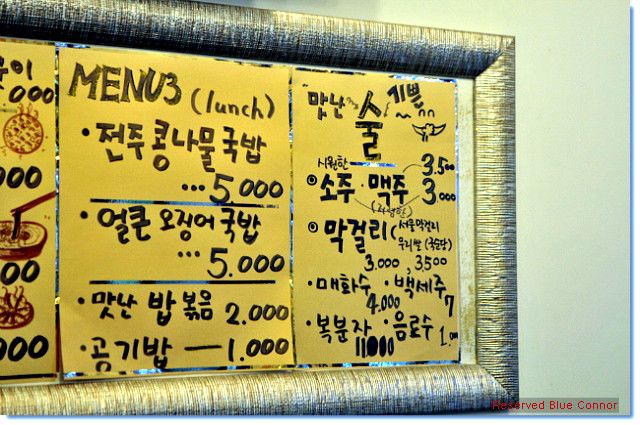 000
000
00
000
MENU3 (lunch)
· 전주 콩나물국밥
··· 5.000
· 얼큰 오징어국밥
··· 5.000
· 맛난 밥 볶음 2.000
· 공기밥 — 1.000
맛난 술 기쁨
시원한
소주 · 맥주 3.500
3.000
막걸리 (서울막걸리
우리쌀 (국순당)
3.000, 3,500
· 매화수 · 백세주
4.000 7
· 복분자 · 음료수
11000 1.000
Reserved Blue Connor